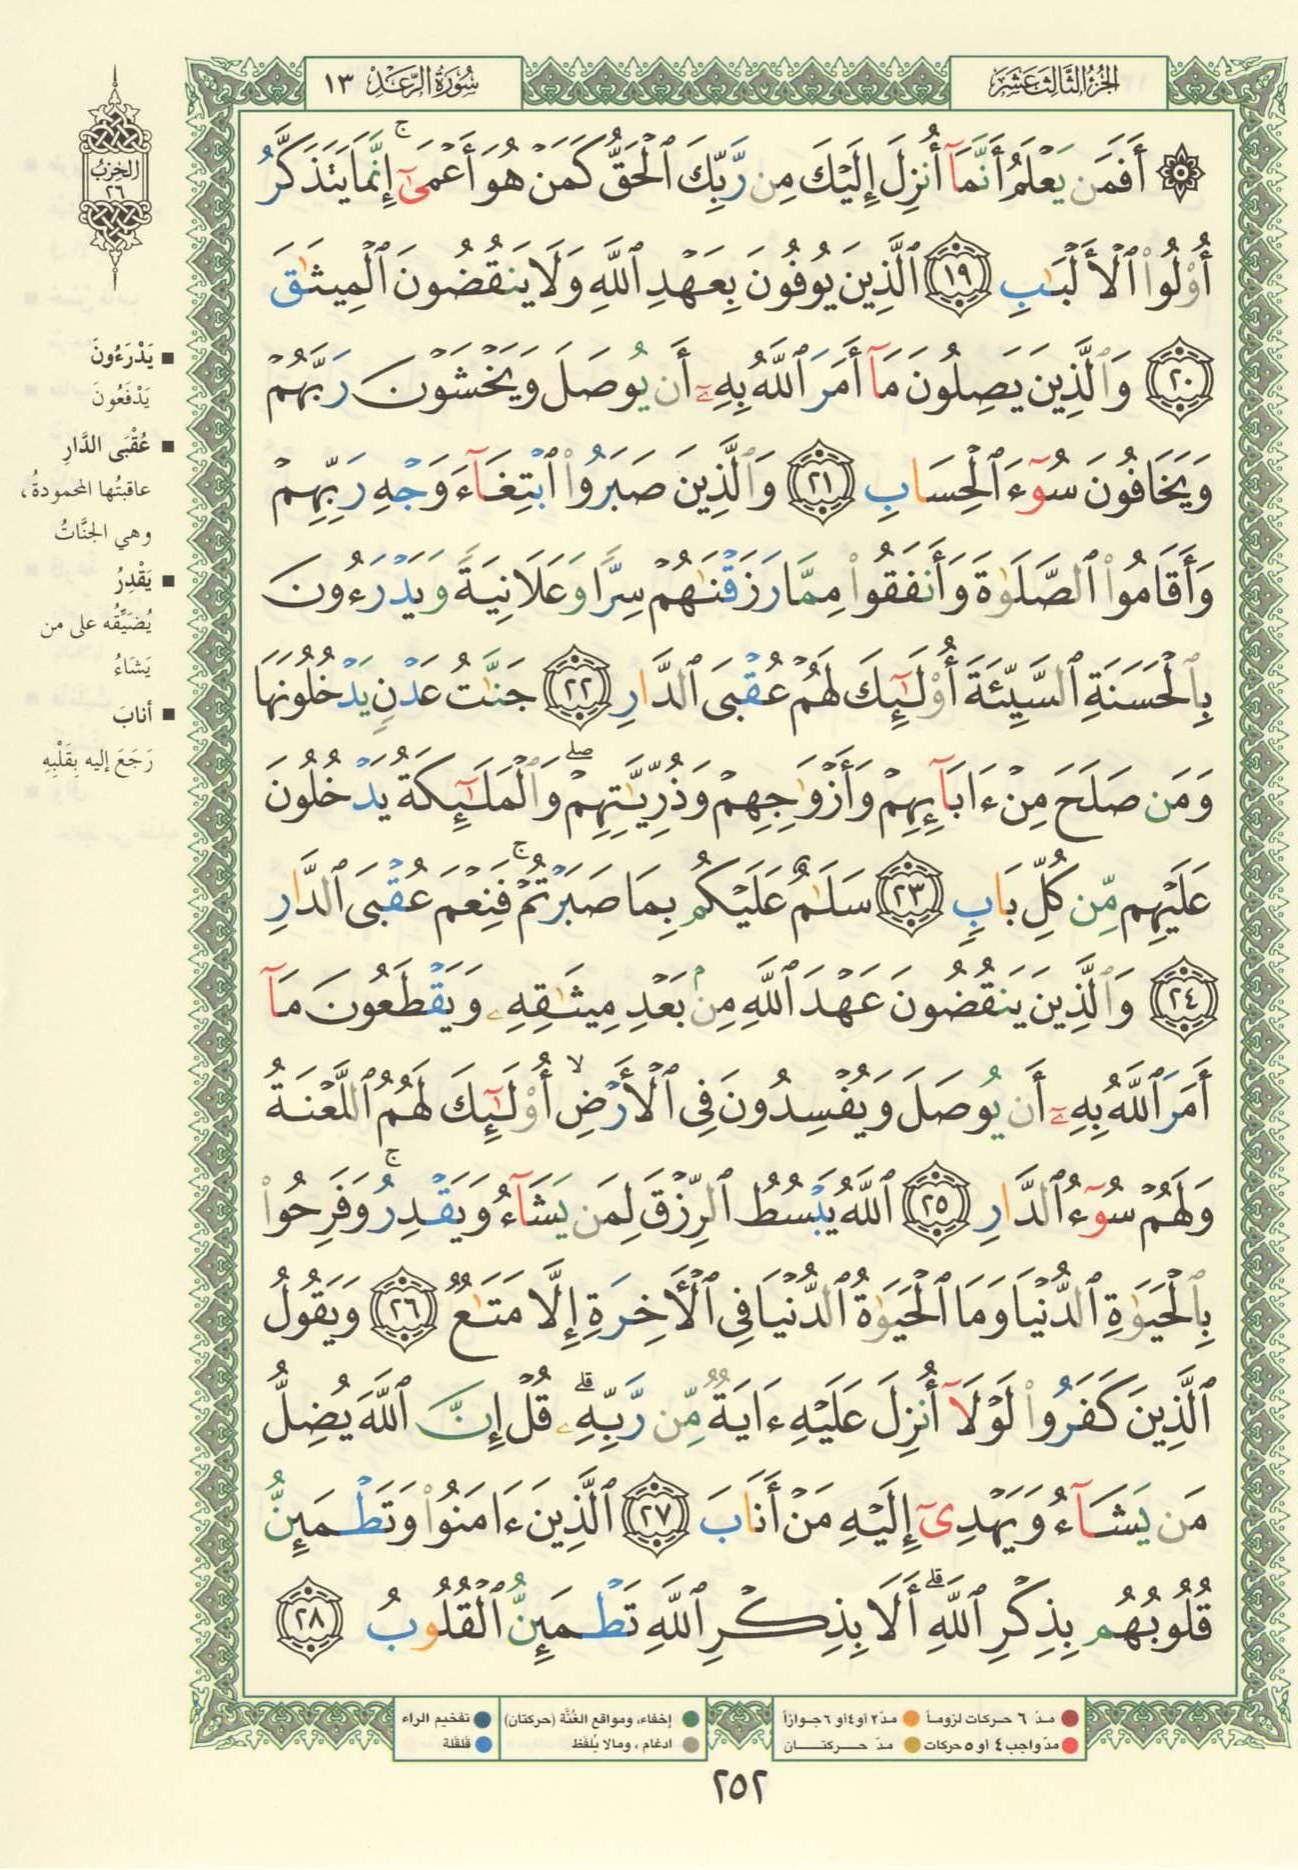 الجزء الثالث عشر
سورة الرعد ١٣
۞ أَفَمَن يَعْلَمُ أَنَّمَآ أُنزِلَ إِلَيْكَ مِن رَّبِّكَ ٱلْحَقُّ كَمَنْ هُوَ أَعْمَىٰٓ ۚ إِنَّمَا يَتَذَكَّرُ
أُو۟لُوا۟ ٱلْأَلْبَـٰبِ ١٩ ٱلَّذِينَ يُوفُونَ بِعَهْدِ ٱللَّهِ وَلَا يَنقُضُونَ ٱلْمِيثَـٰقَ
٢٠ وَٱلَّذِينَ يَصِلُونَ مَآ أَمَرَ ٱللَّهُ بِهِۦٓ أَن يُوصَلَ وَيَخْشَوْنَ رَبَّهُمْ
وَيَخَافُونَ سُوٓءَ ٱلْحِسَابِ ٢١ وَٱلَّذِينَ صَبَرُوا۟ ٱبْتِغَآءَ وَجْهِ رَبِّهِمْ
وَأَقَامُوا۟ ٱلصَّلَوٰةَ وَأَنفَقُوا۟ مِمَّا رَزَقْنَـٰهُمْ سِرًّا وَعَلَانِيَةً وَيَدْرَءُونَ
بِٱلْحَسَنَةِ ٱلسَّيِّئَةَ أُو۟لَـٰٓئِكَ لَهُمْ عُقْبَى ٱلدَّارِ ٢٢ جَنَّـٰتُ عَدْنٍ يَدْخُلُونَهَا
وَمَن صَلَحَ مِنْ ءَابَآئِهِمْ وَأَزْوَٰجِهِمْ وَذُرِّيَّـٰتِهِمْ ۖ وَٱلْمَلَـٰٓئِكَةُ يَدْخُلُونَ
عَلَيْهِم مِّن كُلِّ بَابٍ ٢٣ سَلَـٰمٌ عَلَيْكُم بِمَا صَبَرْتُمْ ۚ فَنِعْمَ عُقْبَى ٱلدَّارِ
٢٤ وَٱلَّذِينَ يَنقُضُونَ عَهْدَ ٱللَّهِ مِنۢ بَعْدِ مِيثَـٰقِهِۦ وَيَقْطَعُونَ مَآ
أَمَرَ ٱللَّهُ بِهِۦٓ أَن يُوصَلَ وَيُفْسِدُونَ فِى ٱلْأَرْضِ ۙ أُو۟لَـٰٓئِكَ لَهُمُ ٱللَّعْنَةُ
وَلَهُمْ سُوٓءُ ٱلدَّارِ ٢٥ ٱللَّهُ يَبْسُطُ ٱلرِّزْقَ لِمَن يَشَآءُ وَيَقْدِرُ ۚ وَفَرِحُوا۟
بِٱلْحَيَوٰةِ ٱلدُّنْيَا وَمَا ٱلْحَيَوٰةُ ٱلدُّنْيَا فِى ٱلْـَٔاخِرَةِ إِلَّا مَتَـٰعٌ ٢٦ وَيَقُولُ
ٱلَّذِينَ كَفَرُوا۟ لَوْلَآ أُنزِلَ عَلَيْهِ ءَايَةٌ مِّن رَّبِّهِۦ ۗ قُلْ إِنَّ ٱللَّهَ يُضِلُّ
مَن يَشَآءُ وَيَهْدِىٓ إِلَيْهِ مَنْ أَنَابَ ٢٧ ٱلَّذِينَ ءَامَنُوا۟ وَتَطْمَئِنُّ
قُلُوبُهُم بِذِكْرِ ٱللَّهِ ۗ أَلَا بِذِكْرِ ٱللَّهِ تَطْمَئِنُّ ٱلْقُلُوبُ ٢٨
الحزب
٢٦
■ يَدْرَءُونَ
يَدْفَعُونَ
■ عُقْبَى الدَّارِ
عاقبتُها المحمودةُ،
وهي الجنَّاتُ
■ يَقْدِرُ
يُضَيِّقُه على من
يَشَاءُ
■ أنابَ
رَجَعَ إليه بِقَلْبِهِ
● مدّ ٦ حركات لزوماً ● مدّ٢ أو٤أو ٦جوازاً
● مدّ واجب ٤ أو ٥ حركات ● مدّ حركتان
● إخفاء، ومواقع الغُنَّة (حركتان)
● ادغام ، ومالا يُلفَظ
● تفخيم الراء
● قلقلة
٢٥٢